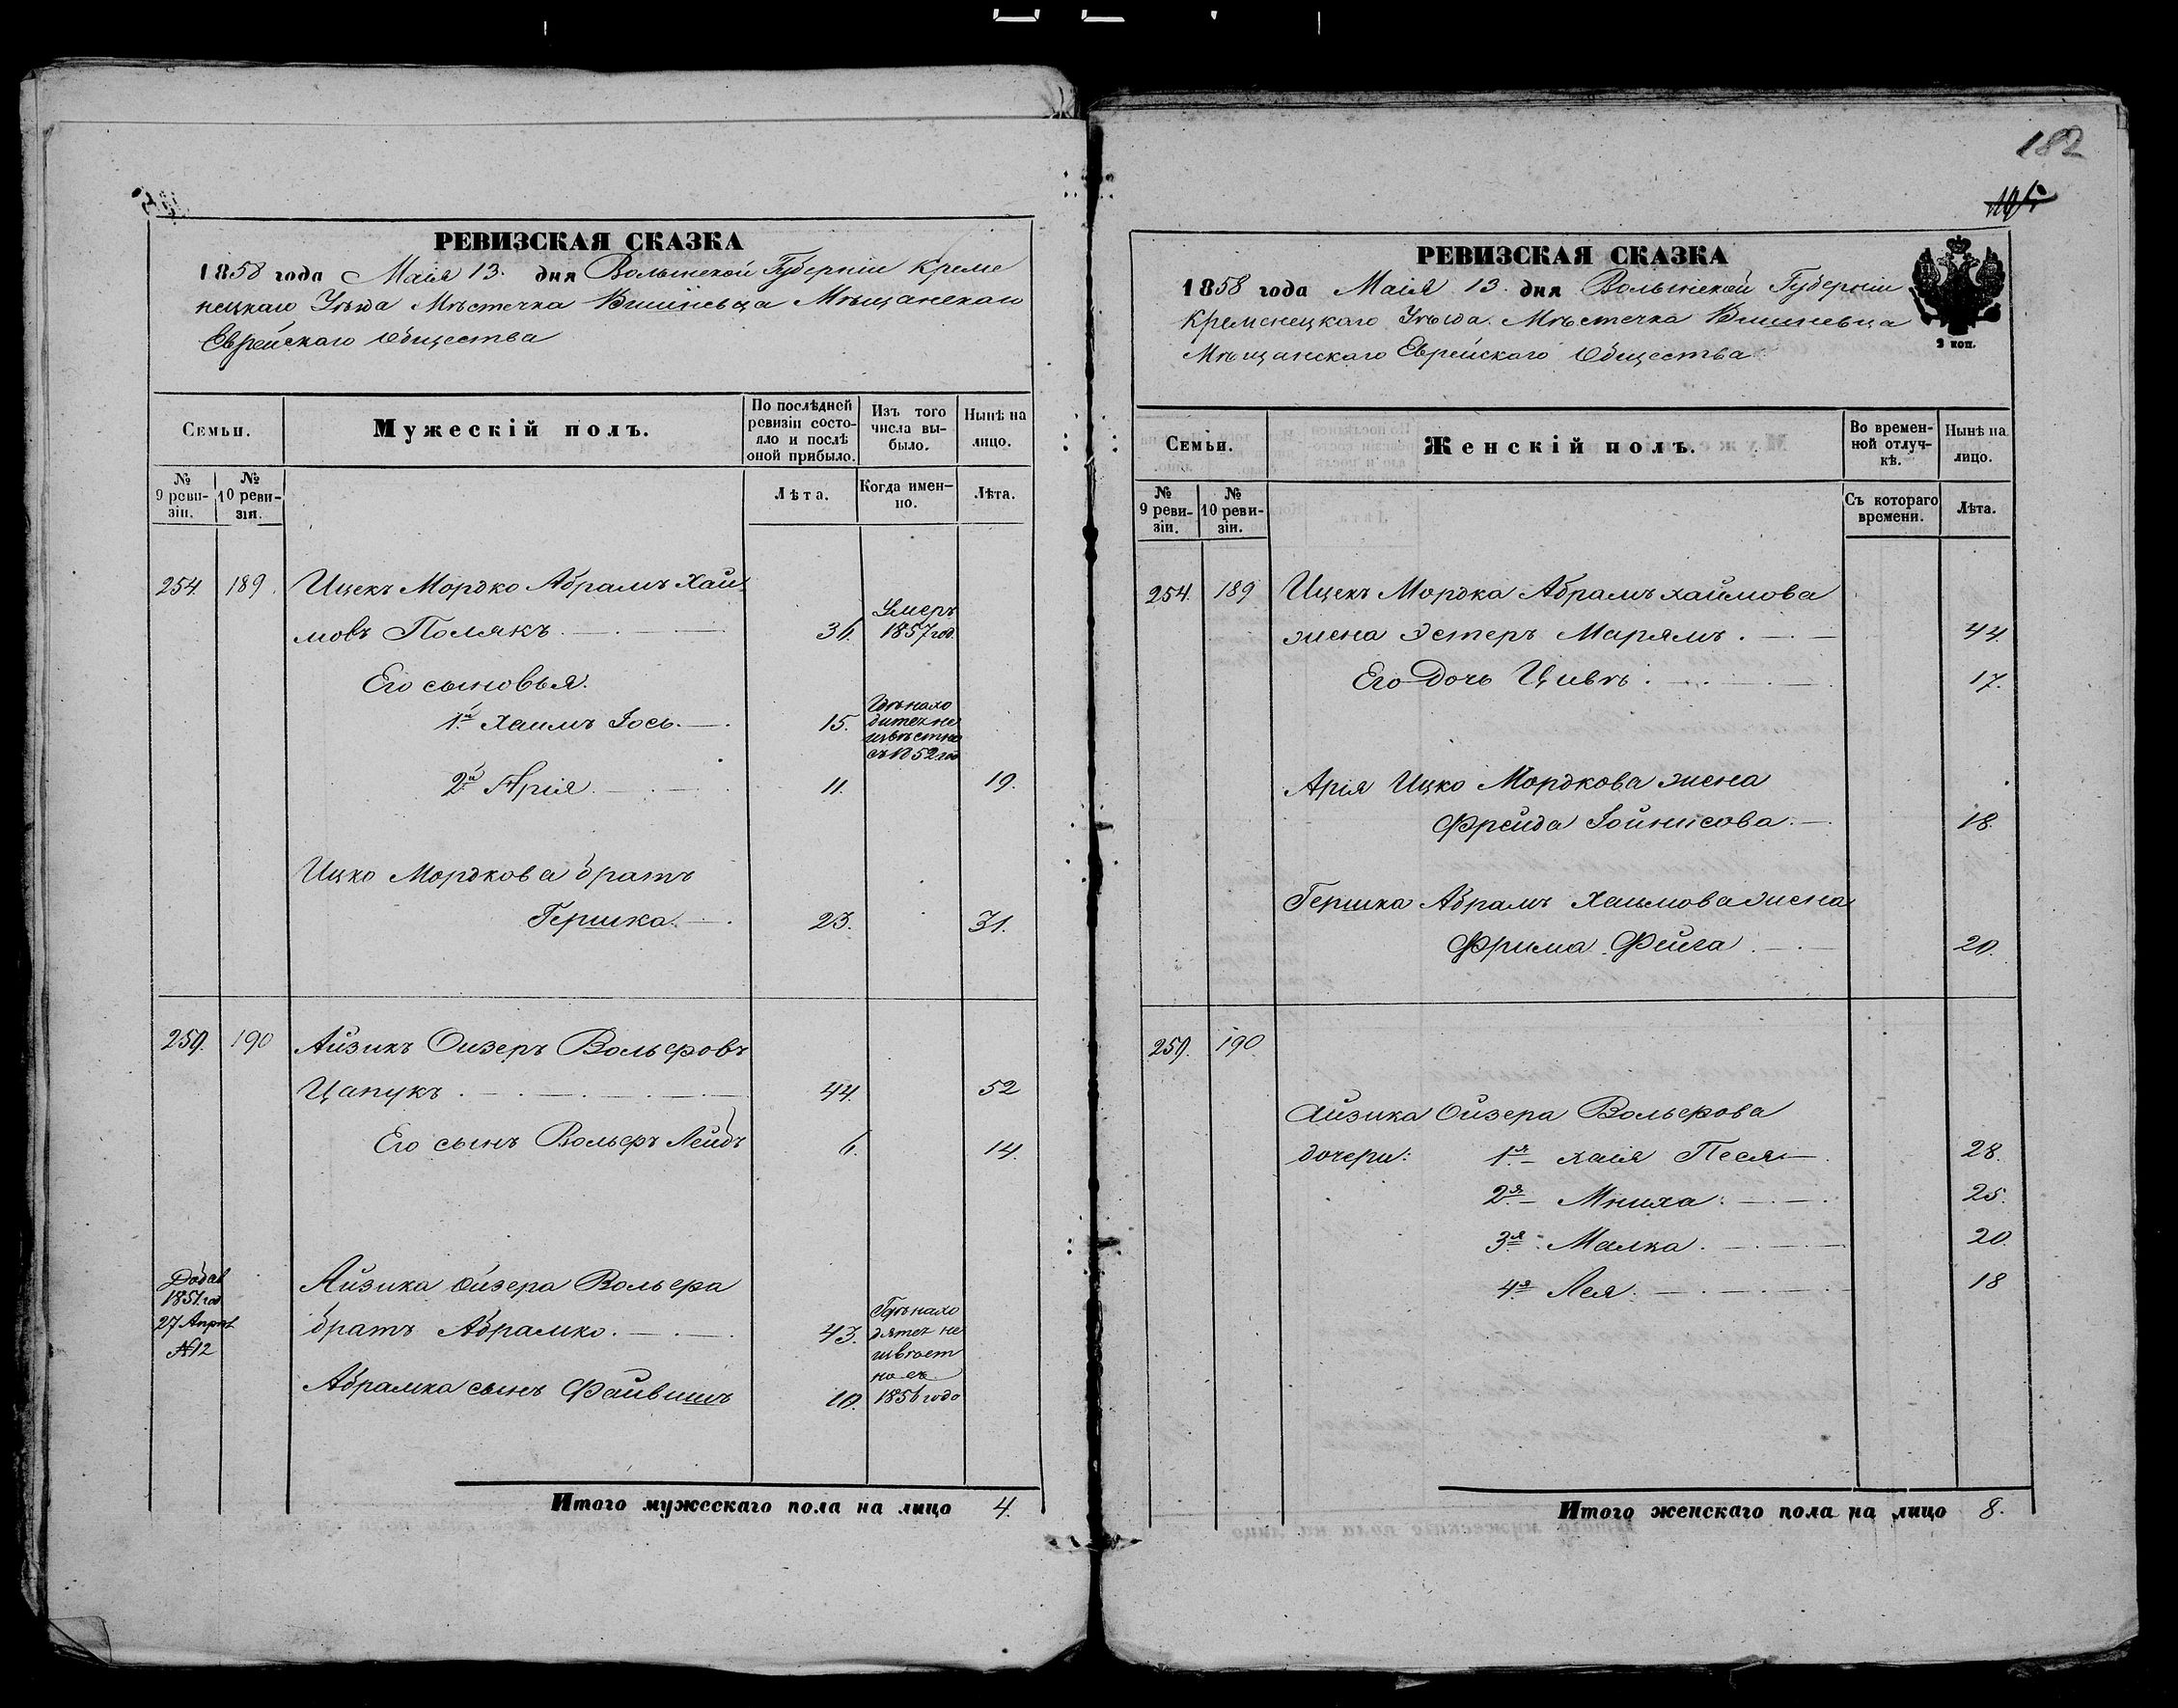 182
РЕВИЗСКАЯ СКАЗКА
1858 года Маія 13. дня Волынской Губерніи Креме
нецкаго Уѣзда Мѣстечка Вишневца Мѣщанскаго
Еврейскаго Общества
Семьи.
Мужескій полъ.
По послѣдней ревизіи состояло и послѣ оной прибыло.
Изъ того числа выбыло.
Нынѣ на лицо.
№ 9 ревизіи.
№ 10 ревизіи.
Лѣта.
Когда именно.
Лѣта.
254. 189. Ицекъ Мордко Абрамъ Хаи
мовъ Полякъ. 36. Умеръ 1857 год.
Его сыновья.
1й Хаимъ Іось. 15. Гдѣ нахо
дится не
извѣстно
съ 1852 год
2й Арія 11. 19.
Ицко Мордкова братъ
Гершка. 23. 31.
259. 190 Айзикъ Оизеръ Вольфовъ
Цапукъ. 44. 52
Его сынъ Вольфъ Лейбъ 6. 14.
Добав
1851. год
27 Апрѣл
№12
Айзика Ойзера Вольфа
братъ Абрамко. 43. Гдѣ нахо
дятся не
извѣст
но съ
Абрамка сынъ Файвишъ 10. 1856 года
Итого мужескаго пола на лицо 4.
РЕВИЗСКАЯ СКАЗКА
1858 года Маія 13. дня Волынской Губерніи
Кременецкаго Уѣзда. Мѣстечка Вишневца
Мѣщанскаго Еврейскаго Общества
Семьи.
Женскій полъ.
Во временной отлучкѣ.
Нынѣ на лицо.
№ 9 ревизіи.
№ 10 ревизіи.
Съ котораго времени.
Лѣта.
254. 189 Ицекъ Мордка Абрамъ Хаимова
жена Эстеръ Марямъ. 44.
Его дочь Цивѣ. 17.
Арія Ицко Мордкова жена
Фрейда Іойнисова. 18.
Гершка Абрамъ Хаимова жена
Фрима Фейга. 20.
259. 190.
Айзика Ойзера Вольфова
дочери: 1я Хаія Песя 28.
2я Мниха. 25.
3я Малка. 20.
4я Лея. 18
Итого женскаго пола на лицо 8.